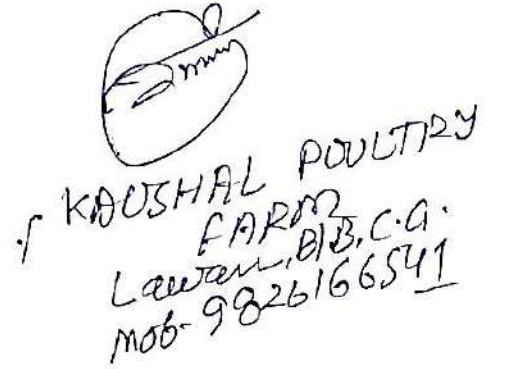 KAUSHAL POULTRY
FARM
Lawan, B/B, C.G.
Mob- 9826166541